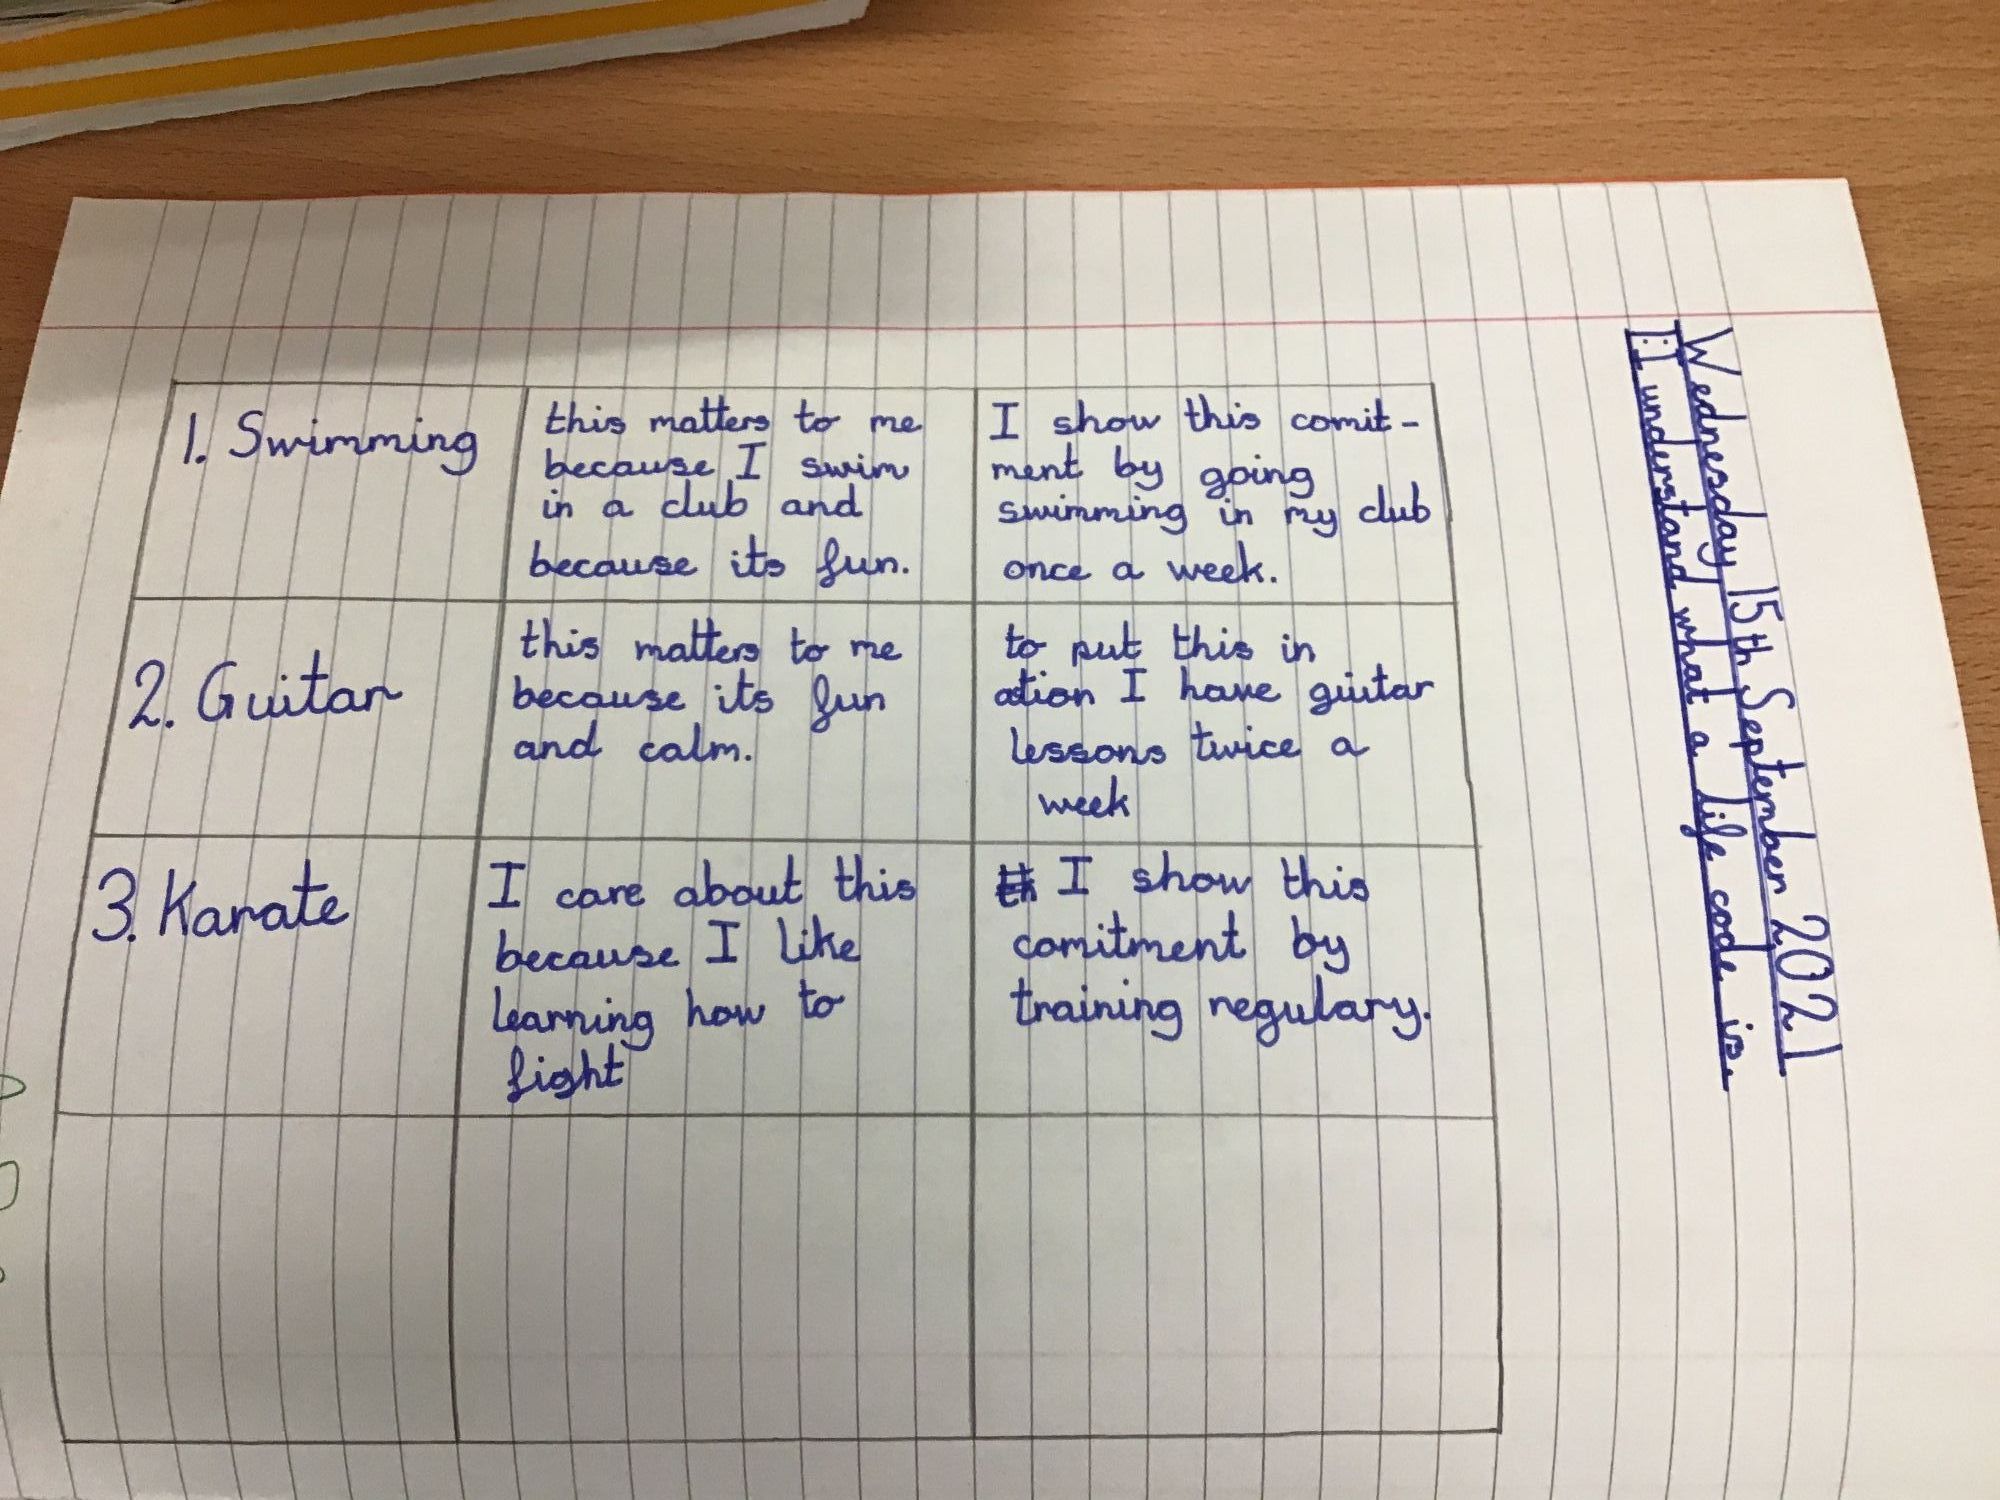 Wednesday 15th September 2021
I: I understand what a life code is.
1. Swimming
this matters to me
because I swim
in a club and
because its fun.
I show this comit-
ment by going
swimming in my club
once a week.
2. Guitar
this matters to me
because its fun
and calm.
to put this in
ation I have guitar
lessons twice a
week
3. Karate
I care about this
because I like
learning how to
fight
I show this
comitment by
training regulary.